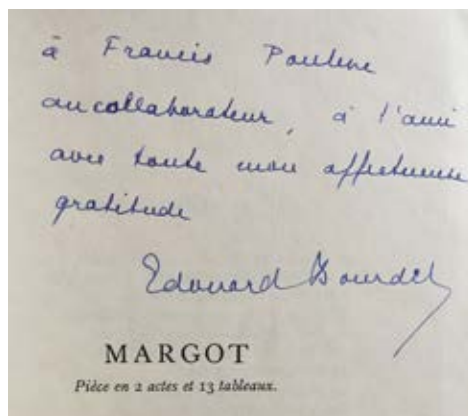 à Francis Poulenc
au collaborateur, à l'ami
avec toute mon affectueuse
gratitude
Edouard Bourdet
MARGOT
Pièce en 2 actes et 13 tableaux.